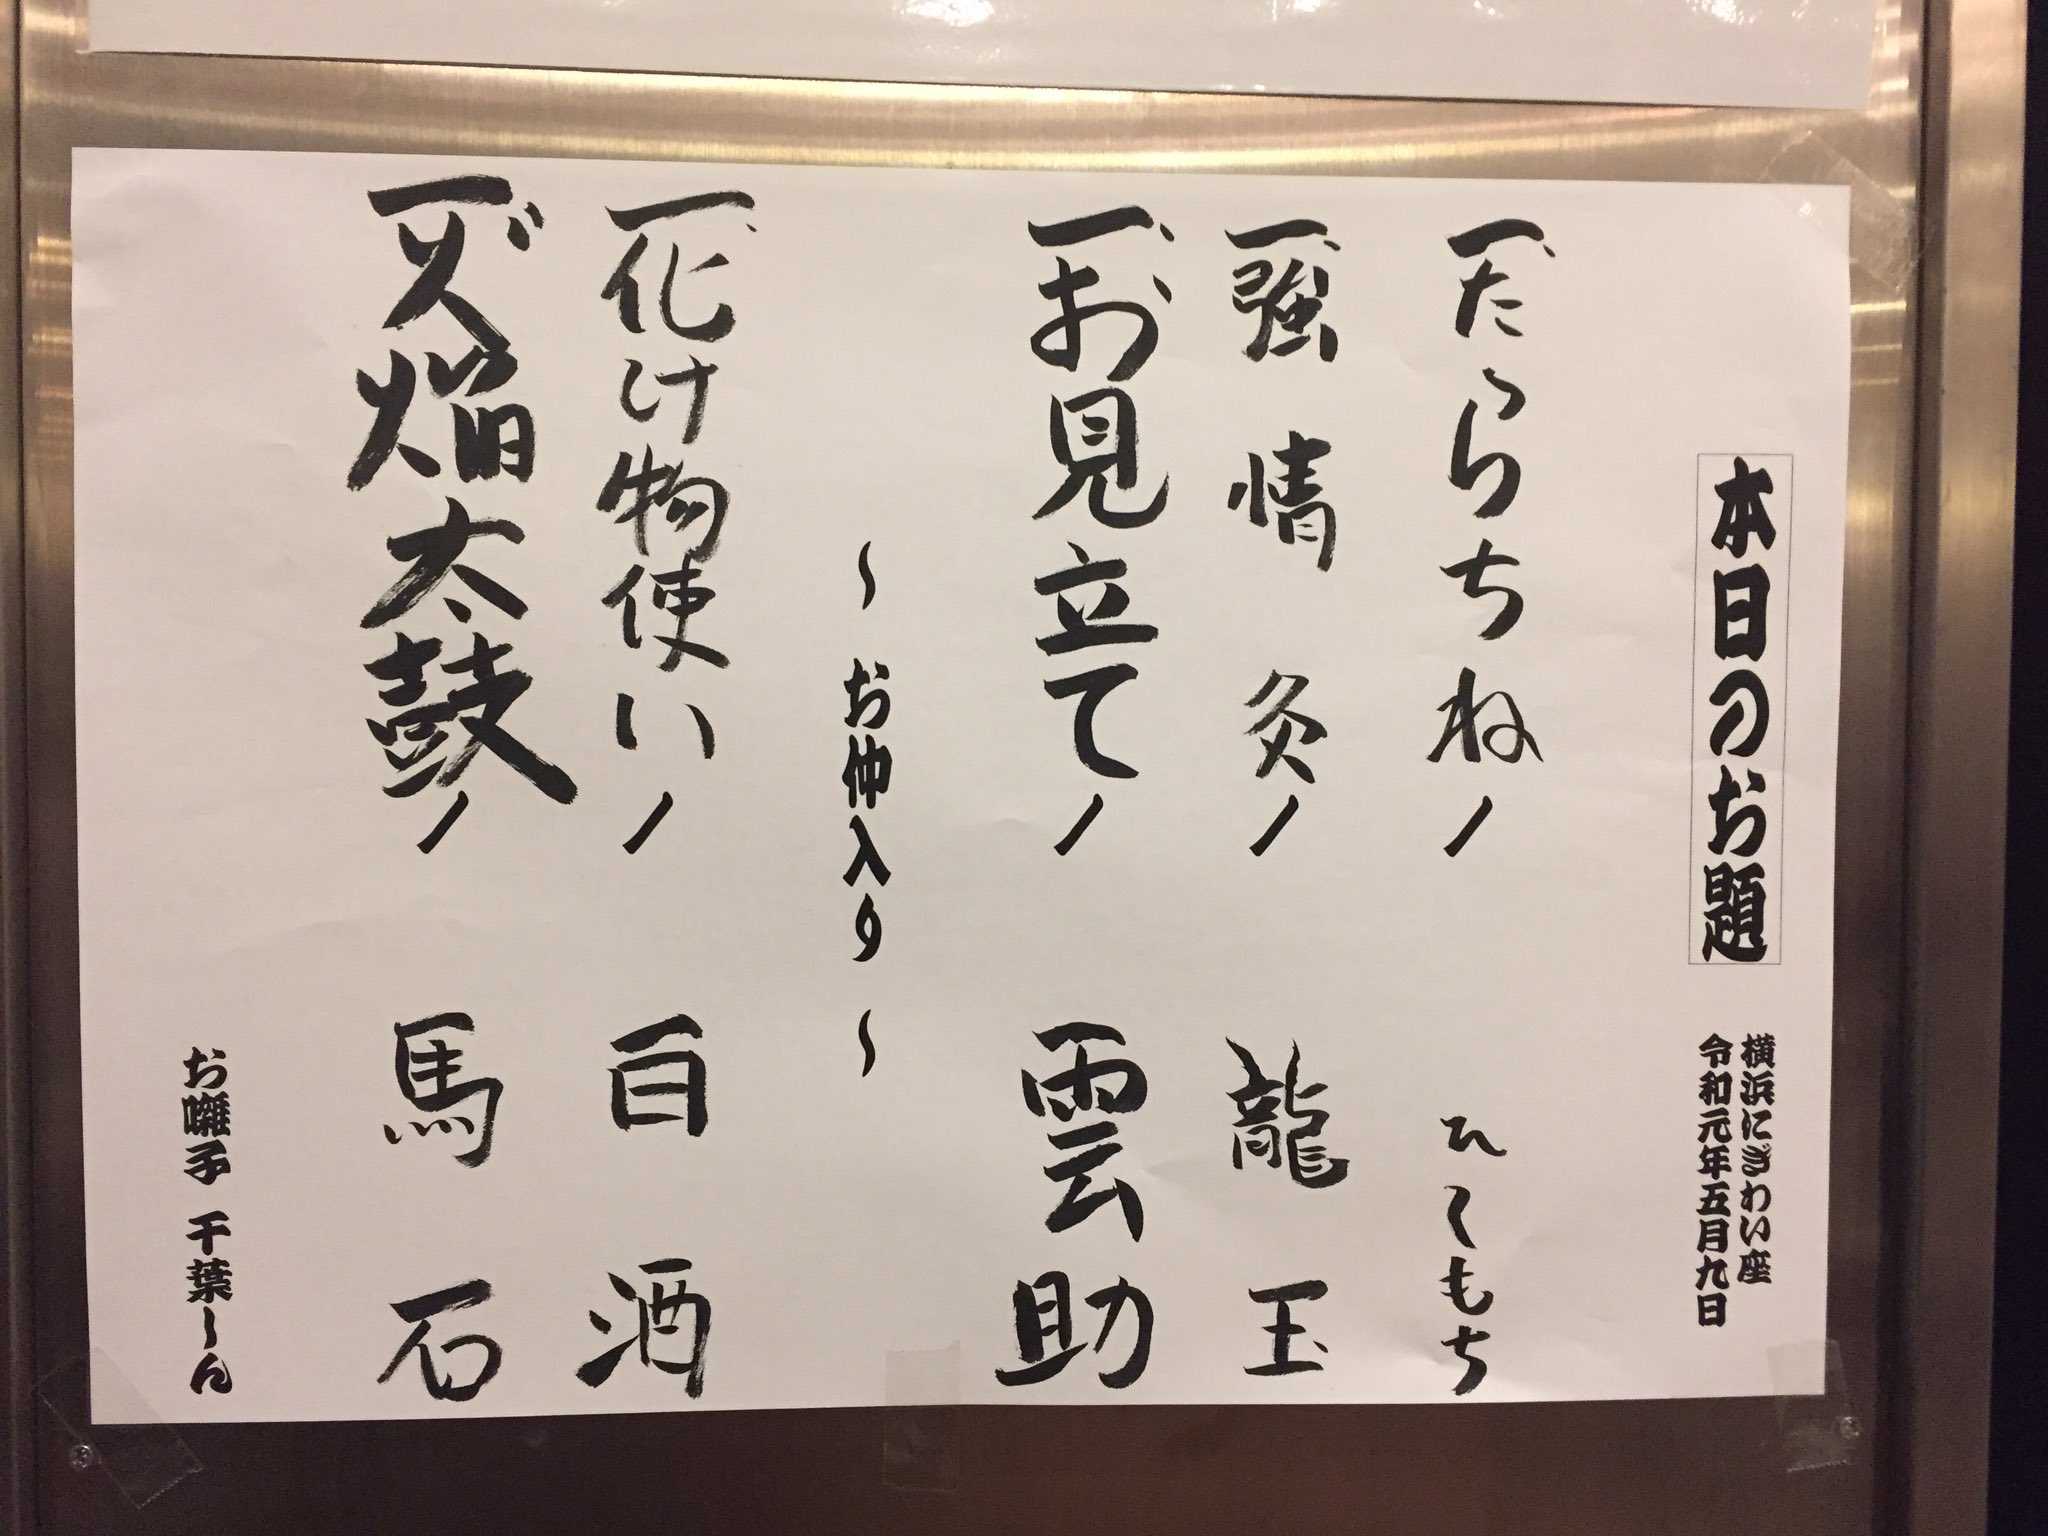 本日のお題
横浜にぎわい座
令和元年五月九日
一、たらちね ひしもち
一、強情灸 龍玉
一、お見立て 雲助
〜お仲入り〜
一、化け物使い 白酒
一、火焔太鼓 馬石
お囃子 千葉しん